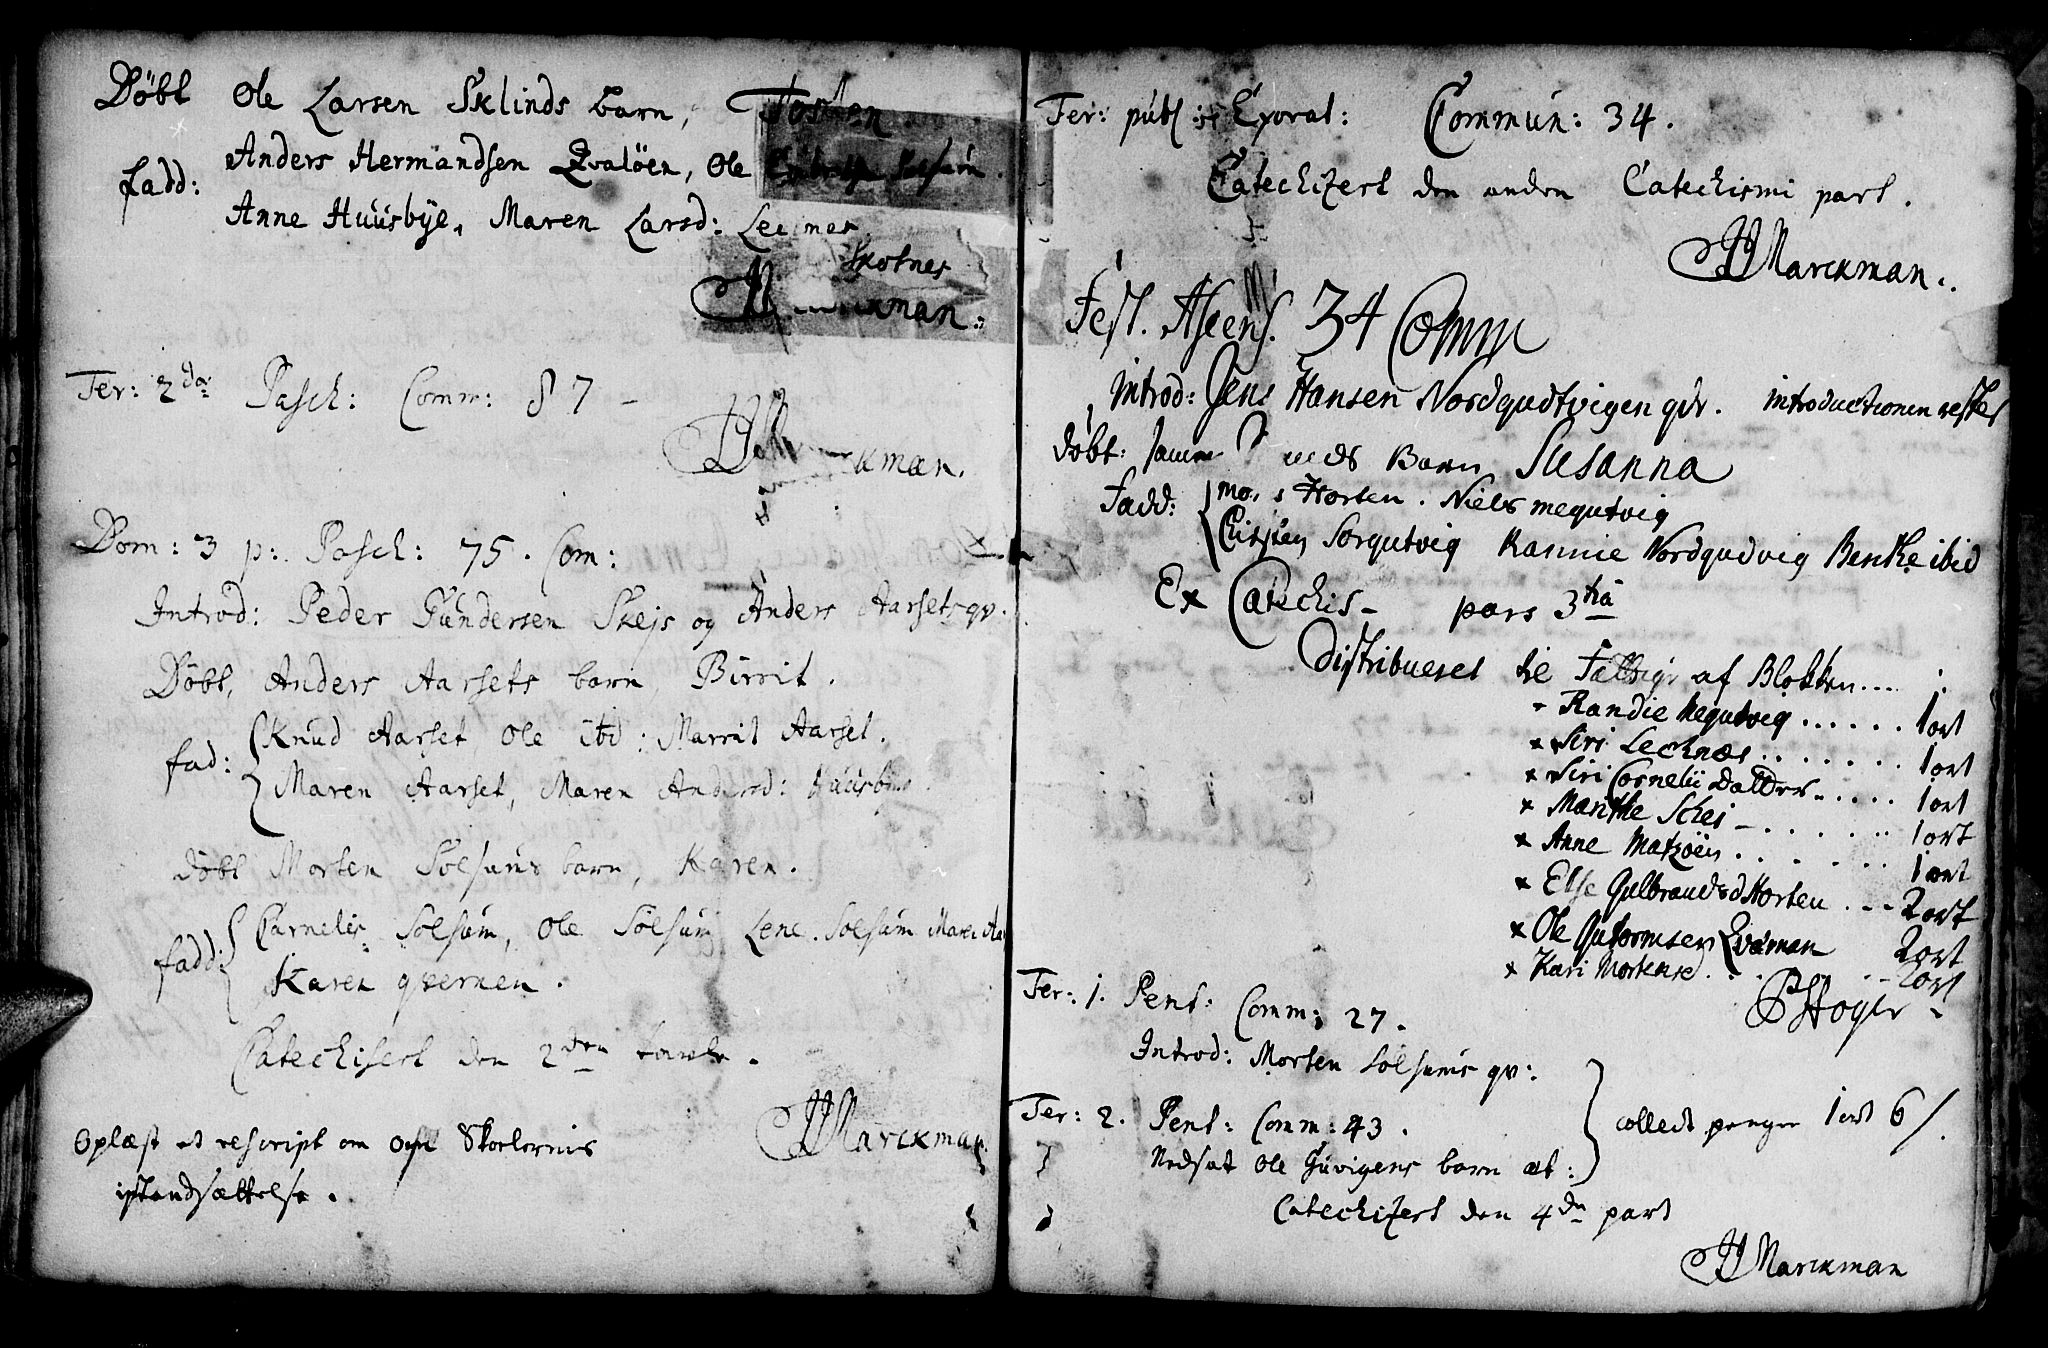 Döbt Ole Larsen Sklinds barn, Tosten
fadd: Anders Hermandsen Qvalöen, Ole Solsum.
Anne Huusbye, Maren Larsd: Lecknes
Skotnes
Marckman.
Fer: 2da Pasch: Comm: 87 -
HMarckman.
Dom: 3 p: Pasch: 75. Com:
Introd: Peder Gundersen Skejs og Anders Aarsets qv.
Döbt, Anders Aarsets barn Birrit.
fad: Knud Aarset Ole ibd: Marrit Aarset.
Maren Aarset, Maren Andersd: Huusbye
döbt Morten Solsums barn, Karen.
fadd: Cornelis Solsum, Ole Solsum Lene Solsum Maren
Karen qvernen.
Catechisert den 2den tavle.
HMarckman
Oplæst et rescript om Skovlernis
istandsættelse.
Fer: publ: Exorat: Commun: 34.
Catechizert den anden Catechismi part.
HMarckman.
Fest. Ascens. 34 Comm
introd: Jens Hansen Nordgudtvigen qv. introductionen restes
döbt: samme Mands Barn Susanna
Fadd: Horten. Niels megutvig
Christen Sorgutvig Kannie Nordgudvig Benthe ibid
Ex Catechis- pars 3tia
Distribueret til Fattige af Blokken....
- Randie Megutvig ...... 1 ort
x Siri Lecknæs ....... 1 ort
x Siri Cornelii Datter ..... 1 ort
x Marithe Schei - ...... 1 ort
x Anne Matzöen ...... 1 ort
x Else Gulbrandsd Horten ... 2 ort
x Ole Gutormsen Qvaman 2 ort
x Kari Mortensd. ... 2 ort
PHöyer
Fer: 1. Pent: Comm: 27.
Introd: Morten Solsums qv:
Fer: 2. Pent: Comm: 43.
collect penger 1 ort 6 s.
Nedsat Ole Guvigens barn æt:
Catechizert den 4de part
HMarckman